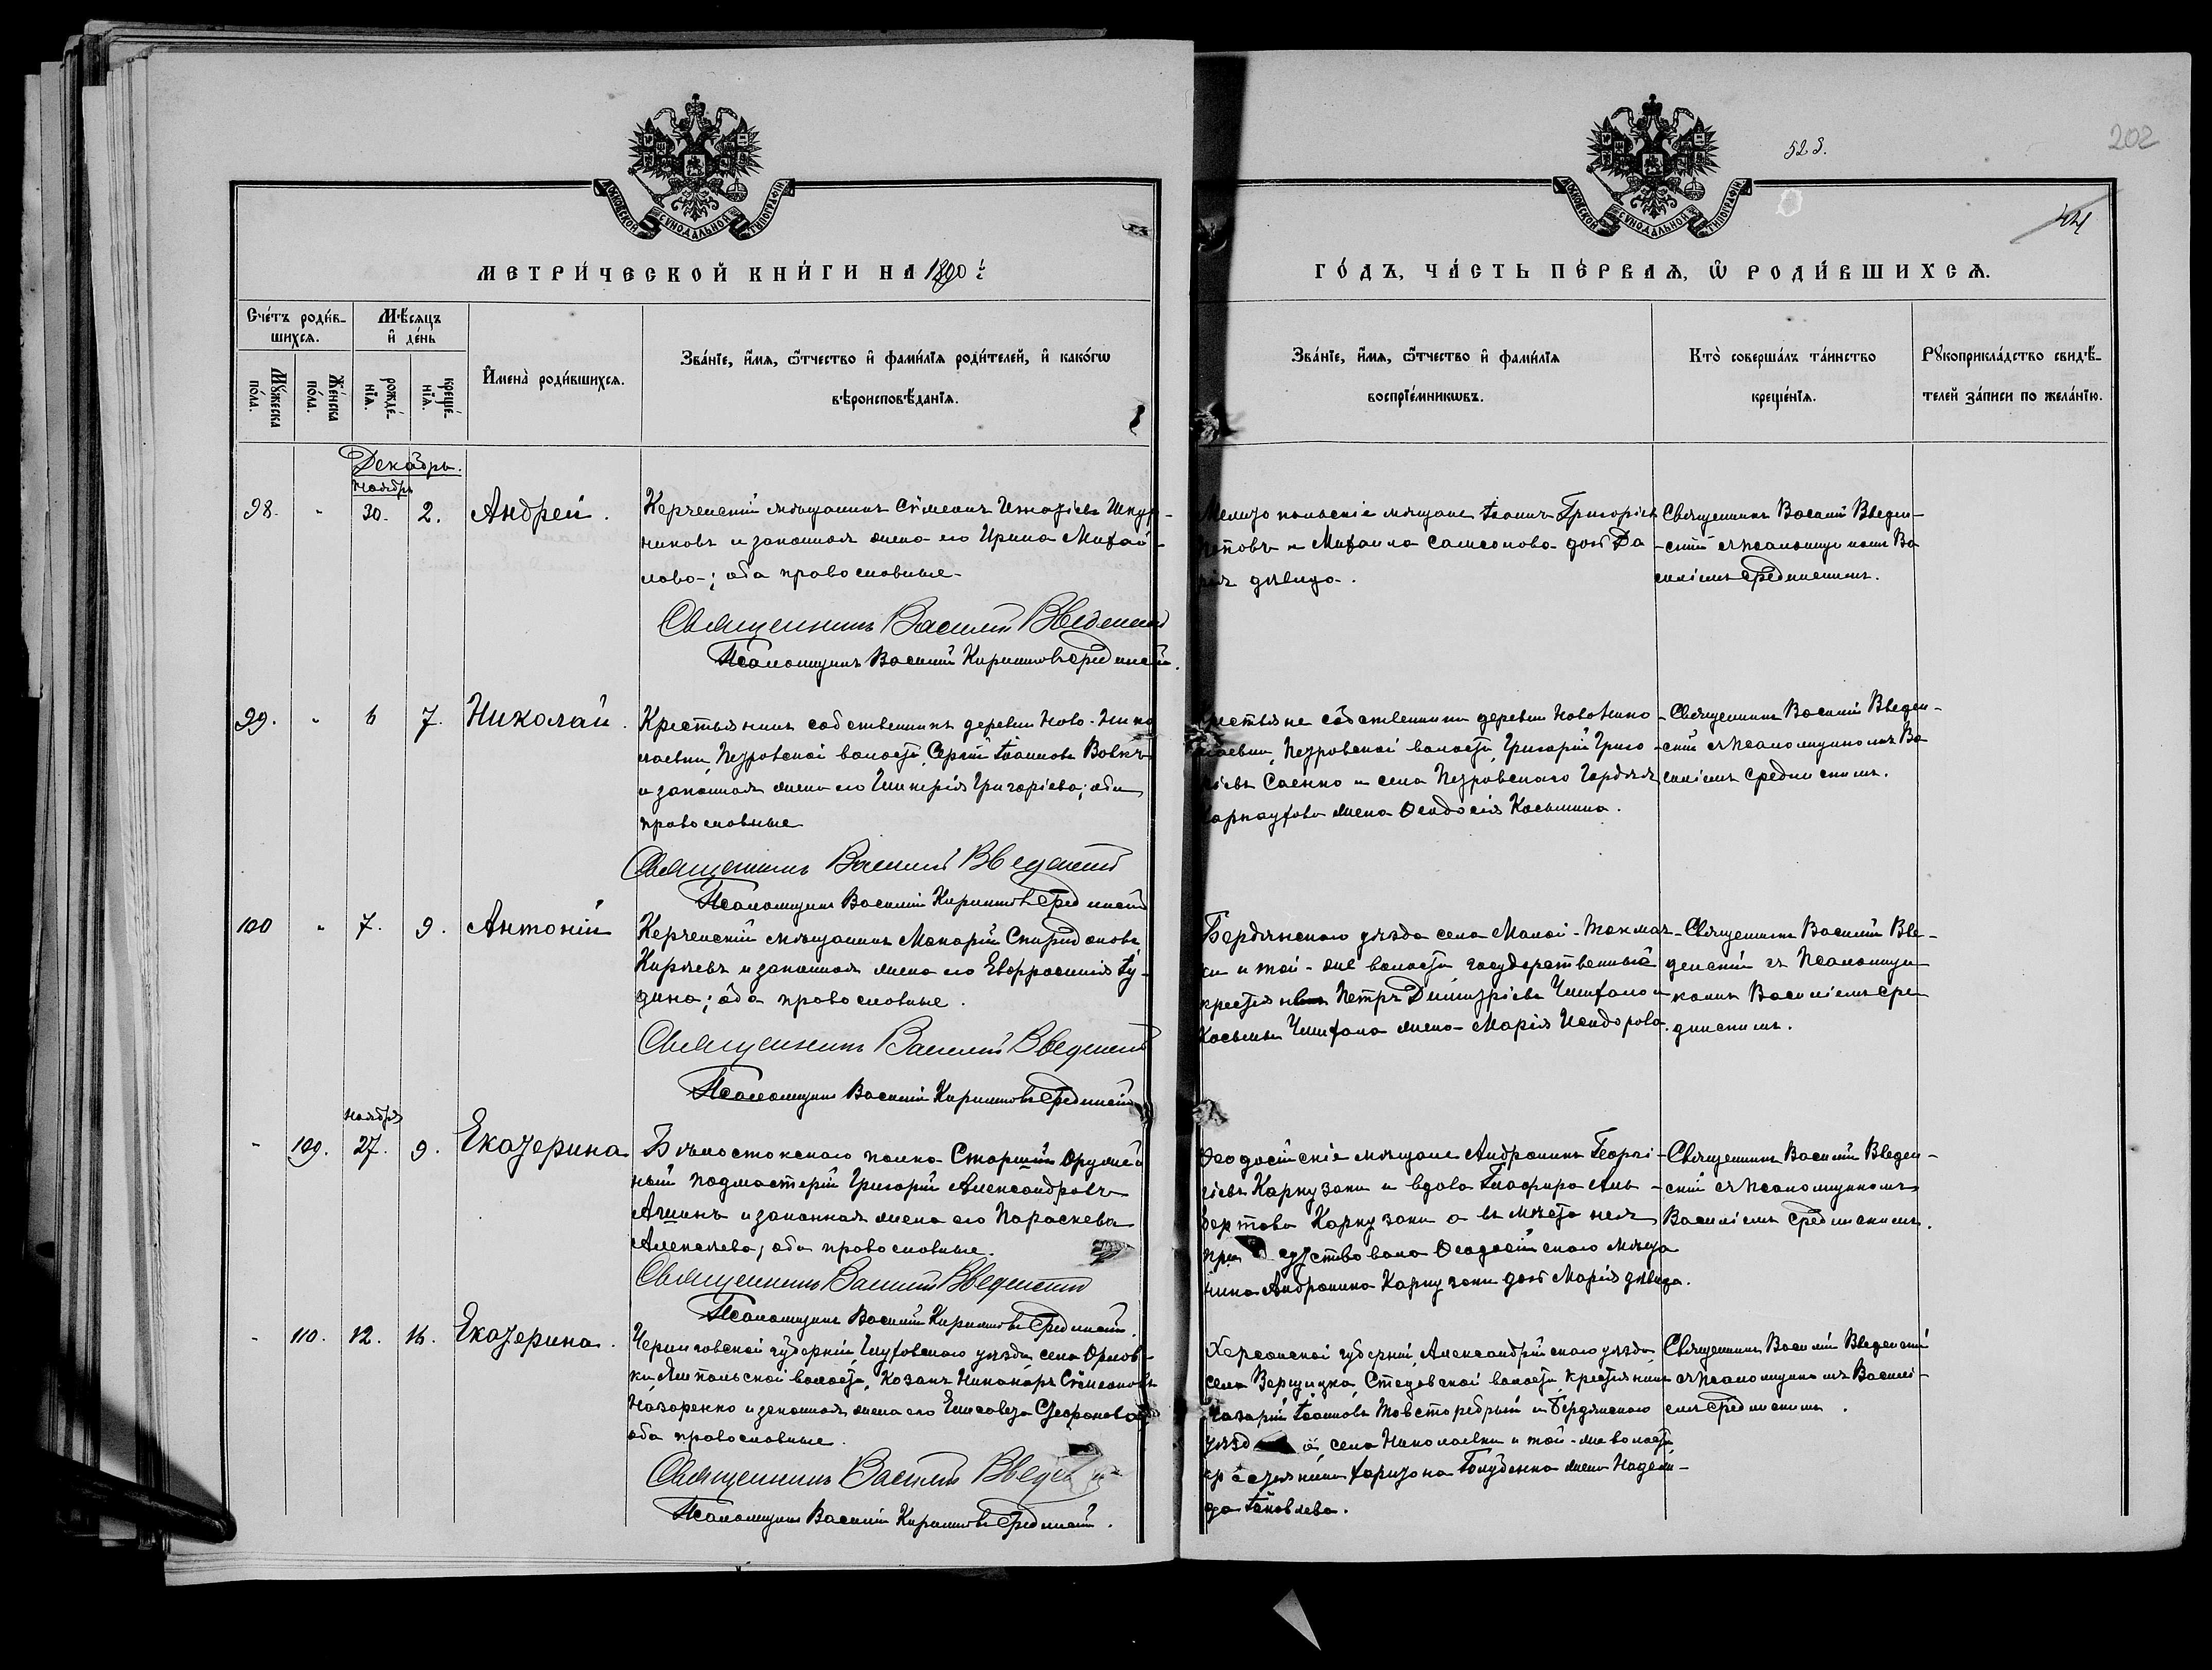 523.
202
МОСКОВСКОЙ СѴНОДАЛЬНОЙ ТИПОГРАФІИ
МОСКОВСКОЙ СѴНОДАЛЬНОЙ ТИПОГРАФІИ
МЕТРИ́ЧЕСКОЙ КНИ́ГИ НА 1890 й
ГО́ДЪ, ЧА́СТЬ ПЕ́РВАѦ, Ѡ РОДИ́ВШИХСѦ.
Сче́тъ роди́в-
шихсѧ.
Мꙋ́жеска по́ла.
Же́нска по́ла.
Мѣ́сѧцъ и҆ де́нь
рожде́-нїѧ.
креще́-нїѧ.
И҆мена̀ роди́вшихсѧ.
Зва́нїе, и҆́мѧ, ѻ҆́тчество и҆ фами́лїѧ роди́телей, и҆ како́гѡ
вѣроисповѣ́данїѧ.
Зва́нїе, и҆́мѧ, ѻ҆́тчество и҆ фами́лїѧ
воспрїе́мникѡвъ.
Кто̀ соверша́лъ та́инство
креще́нїѧ.
Рꙋкоприкла́дство свидѣ́-
телей за́писи по жела́нїю.
Декабрь.
Ноябрь
98. " 30. 2. Андрей.
Керченскій мѣщанинъ Сѵмеонъ Игнатіевъ Шкур-
никовъ и законная жена его Ирина Михай-
лова; оба православные.
Священникъ Василій Введенскій
Псаломщикъ Василій Кирилловъ Срединскій.
Мелитопольскіе мѣщане Іоаннъ Григорьевъ
Поповъ и Михаила Самсонова дочь Да
рія дѣвица.
Священникъ Василій Введен-
скій съ псаломщикомъ Ва
силіемъ Срединскимъ.
99. " 6 7. Николай.
Крестьянинъ собственникъ деревни Ново-Нико
лаевки, Петровской волости, Сергій Іоанновъ Вовкъ
и законная жена его Гликерія Григоріева; оба
православные
Священникъ Василій Введенскій
Псаломщикъ Василій Кирилловъ Срединскій
Крестьяне собственники деревни Ново Нико
лаевки, Петровской волости, Григорій Григо
ріевъ Саенко и села Петровскаго Гордѣя
Карнаухова жена Ѳеодосія Косьмина.
Священникъ Василій Введен-
скій съ псаломщикомъ Ва
силіемъ Срединскимъ.
100 " 7. 9. Антоній
Керченскій мѣщанинъ Макарій Спиридоновъ
Киряевъ и законная жена его Евфросинія Іу-
дина; оба православные.
Священникъ Василій Введенскій
Псаломщикъ Василій Кирилловъ Срединскій
Бердянскаго уѣзда села Малой-Токмач-
ки и той-же волости государственный
Петръ Димитріевъ
жена Марія Исидорова.
Священникъ Василій Вве-
денскій съ Псаломщи
комъ Василіемъ Сре
динскимъ.
Ноября
" 109. 27. 9. Екатерина
Бѣлостокскаго полка Старшій Оружей
ный подмастерій Григорій Александровъ
и законная жена его Параскева
Алексѣева; оба православные.
Священникъ Василій Введенскій
Псаломщикъ Василій Кирилловъ Срединскій.
Ѳеодосійскіе мѣщане Андроникъ Георгі-
евъ и вдова Глафира Аль-
бертова а въ мѣсто нея
при сутствовала Ѳеодосійскаго мѣща
нина Андроника дочь Марія дѣвица.
Священникъ Василій Введен-
скій съ псаломщикомъ
Василіемъ Срединскимъ.
" 110. 12. 16. Екатерина.
Черниговской губерніи, Глуховскаго уѣзда, села Орлов-
ки, Ямпольской волости, козакъ Никаноръ Сѵмеоновъ
Назаренко и законная жена его Елисавета
оба православные.
Священникъ Василій Введенскій
Псаломщикъ Василій Кирилловъ Срединскій.
Херсонской губерніи, Александрійскаго уѣзда,
села волости, крестьянинъ
Назарій Іоанновъ и Бердянскаго
уѣзда села Николаевки и той-же волости
крестьянина Харитона Голубенка жена Надеж-
да Іаковлева.
Священникъ Василій Введенскій
съ псаломщикомъ Василі-
емъ Срединскимъ.